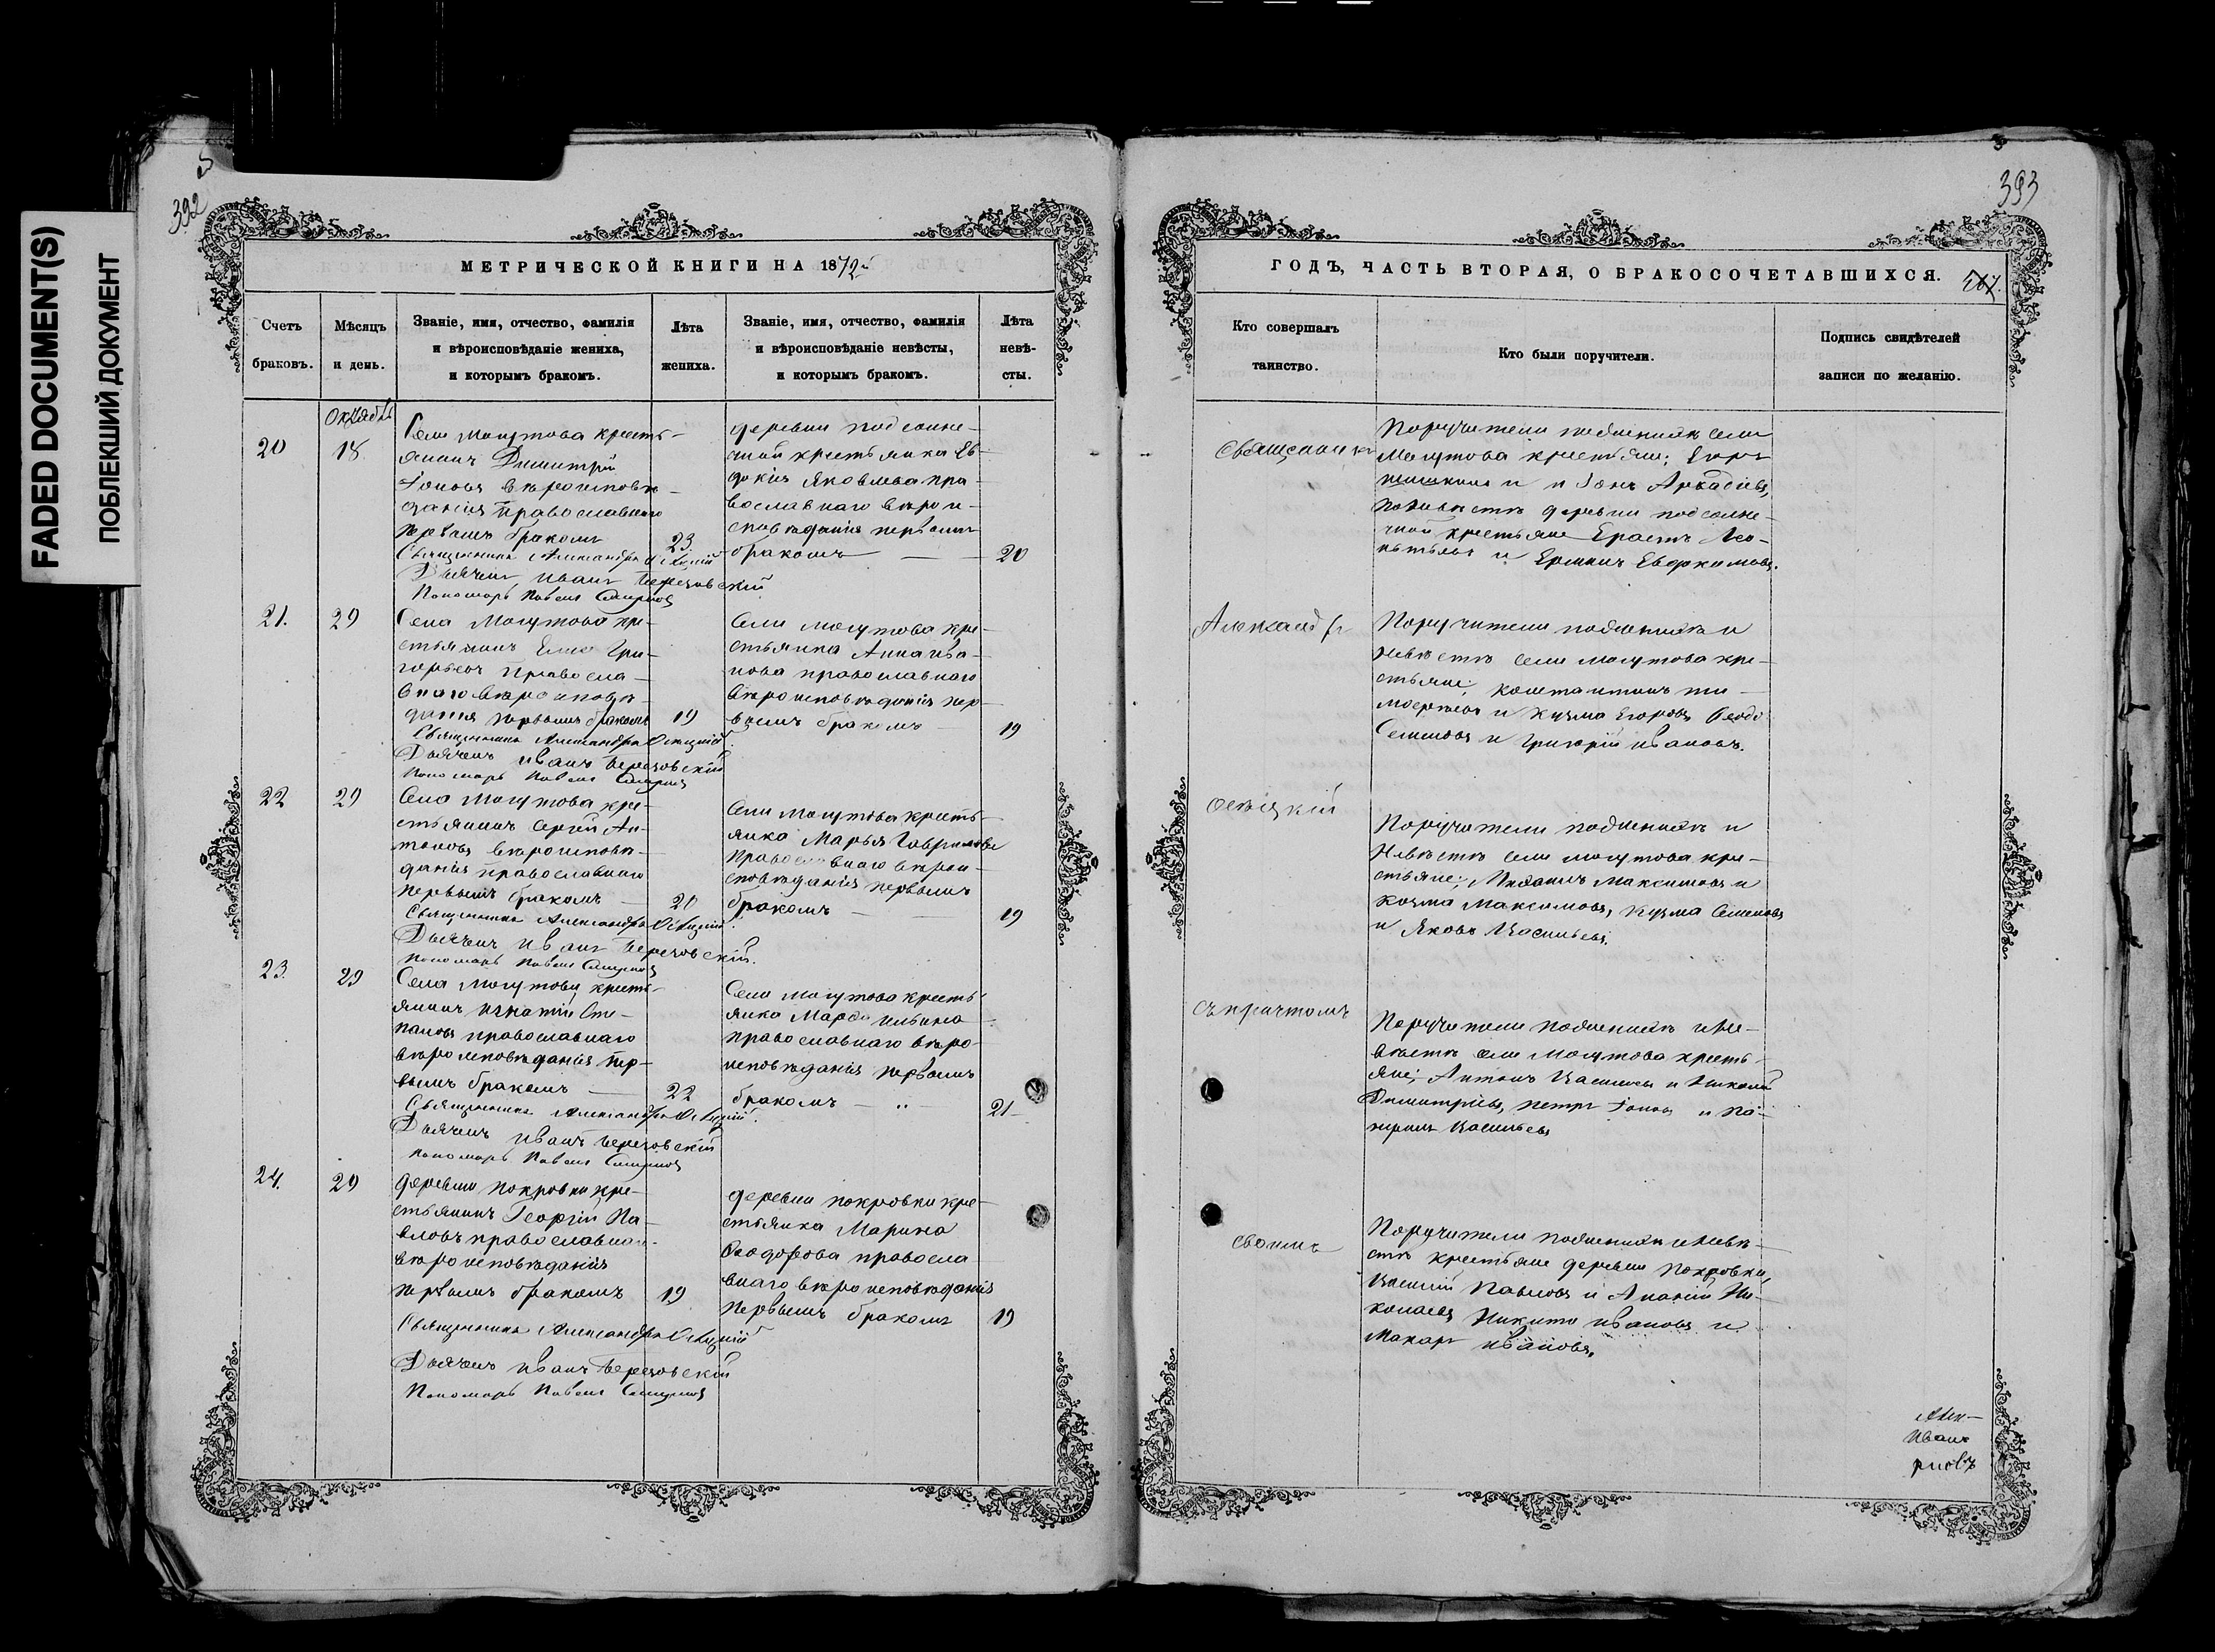 FADED DOCUMENT(S)
ПОБЛЕКШИЙ ДОКУМЕНТ
392
МЕТРИЧЕСКОЙ КНИГИ НА 1872
Счетъ браковъ.
Мѣсяцъ и день.
Званіе, имя, отчество, фамилія
и вѣроисповѣданіе жениха,
и которымъ бракомъ.
Лѣта жениха.
Званіе, имя, отчество, фамилія
и вѣроисповѣданіе невѣсты,
и которымъ бракомъ.
Лѣта невѣ-
сты.
Октябрь
20
18
Села Могутова кресть-
янинъ Димитрій
Іоновъ вѣроисповѣ-
данія православнаго
первымъ бракомъ
23
Священникъ Александръ
Дьячекъ Иванъ Березовскій
Пономарь Павелъ Смирновъ
деревни подсолне-
чной крестьянка Ев-
докія Яковлева пра-
вославнаго вѣрои-
сповѣданія первымъ
бракомъ
20
21.
29
Села Могутова кре-
стьянинъ Гри-
горьевъ правосла-
внаго вѣроисповѣ-
данія первымъ бракомъ
19
Священникъ Александръ
Дьячекъ Иванъ Березовскій
Пономарь Павелъ Смирновъ
Села Могутова кре-
стьянка Анна Ива-
нова православнаго
вѣроисповѣданія пер-
вымъ бракомъ
19
22
29
Села Могутова кре-
стьянинъ Сергѣй Ан-
тоновъ вѣроисповѣ-
данія православнаго
первымъ бракомъ
Священникъ Александръ
Дьячекъ Иванъ Березовскій.
Пономарь Павелъ Смирновъ
Села Могутова кресть-
янка Марья Гаврилова
православнаго вѣрои-
сповѣданія первымъ
бракомъ
19
23.
29
Села Могутова кресть-
янинъ Игнатій Сте-
пановъ православнаго
вѣроисповѣданія пер-
вымъ бракомъ
22
Священникъ Александръ
Дьячекъ Иванъ Березовскій
Пономарь Павелъ Смирновъ
Села Могутова кресть-
янка Марфа Ильина
православнаго вѣро-
исповѣданія первымъ
бракомъ
21
24.
29
деревни Покровки кре-
стьянинъ Георгій Па-
вловъ православнаго
вѣроисповѣданія
первымъ бракомъ
19
Священникъ Александръ
Дьячекъ Иванъ Березовскій
Пономарь Павелъ Смирновъ
деревни Покровки кре-
стьянка Марина
Ѳеодорова правосла
внаго вѣроисповѣданія
первымъ бракомъ
19
393
ГОДЪ, ЧАСТЬ ВТОРАЯ, О БРАКОСОЧЕТАВШИХСЯ.
Кто совершалъ
таинство.
Кто были поручители.
Подпись свидѣтелей
записи по желанію.
Священникъ
Александръ
съ причтомъ
своимъ
Поручители по женихѣ села
Могутова крестьяне;
и Іонъ Аркадіевъ,
по невѣстѣ деревни подсолне-
чной крестьяне Ерастъ
и Ермилъ Евдокимовъ.
Поручители по женихѣ и
невѣстѣ села Могутова кре-
стьяне; Ти-
моѳеевъ и Кузма Егоровъ,
и Григорій Ивановъ.
Поручители по женихѣ и
невѣстѣ села Могутова кре-
стьяне; Максимовъ и
Козма Максимовъ, Кузма Семеновъ
и Яковъ Васильевъ.
Поручители по женихѣ и не-
вѣстѣ села Могутова кресть-
яне; Антонъ Васильевъ и Николай
Димитріевъ, Петръ Іоновъ и
Васильевъ
Поручители по женихѣ и невѣ-
стѣ крестьяне деревни Покровки,
Василій Павловъ и Ананій Ни-
колаевъ Никита Ивановъ и
Макаръ Ивановъ.
Иванъ